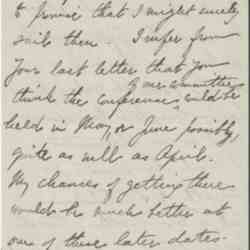 to promise that I might surely
sail then. I infer from
your last letter that you
think the conference of our committee
could be
held in May or June possibly,
quite as well as April.
My chances of getting there
would be much better at
one of these later dates.